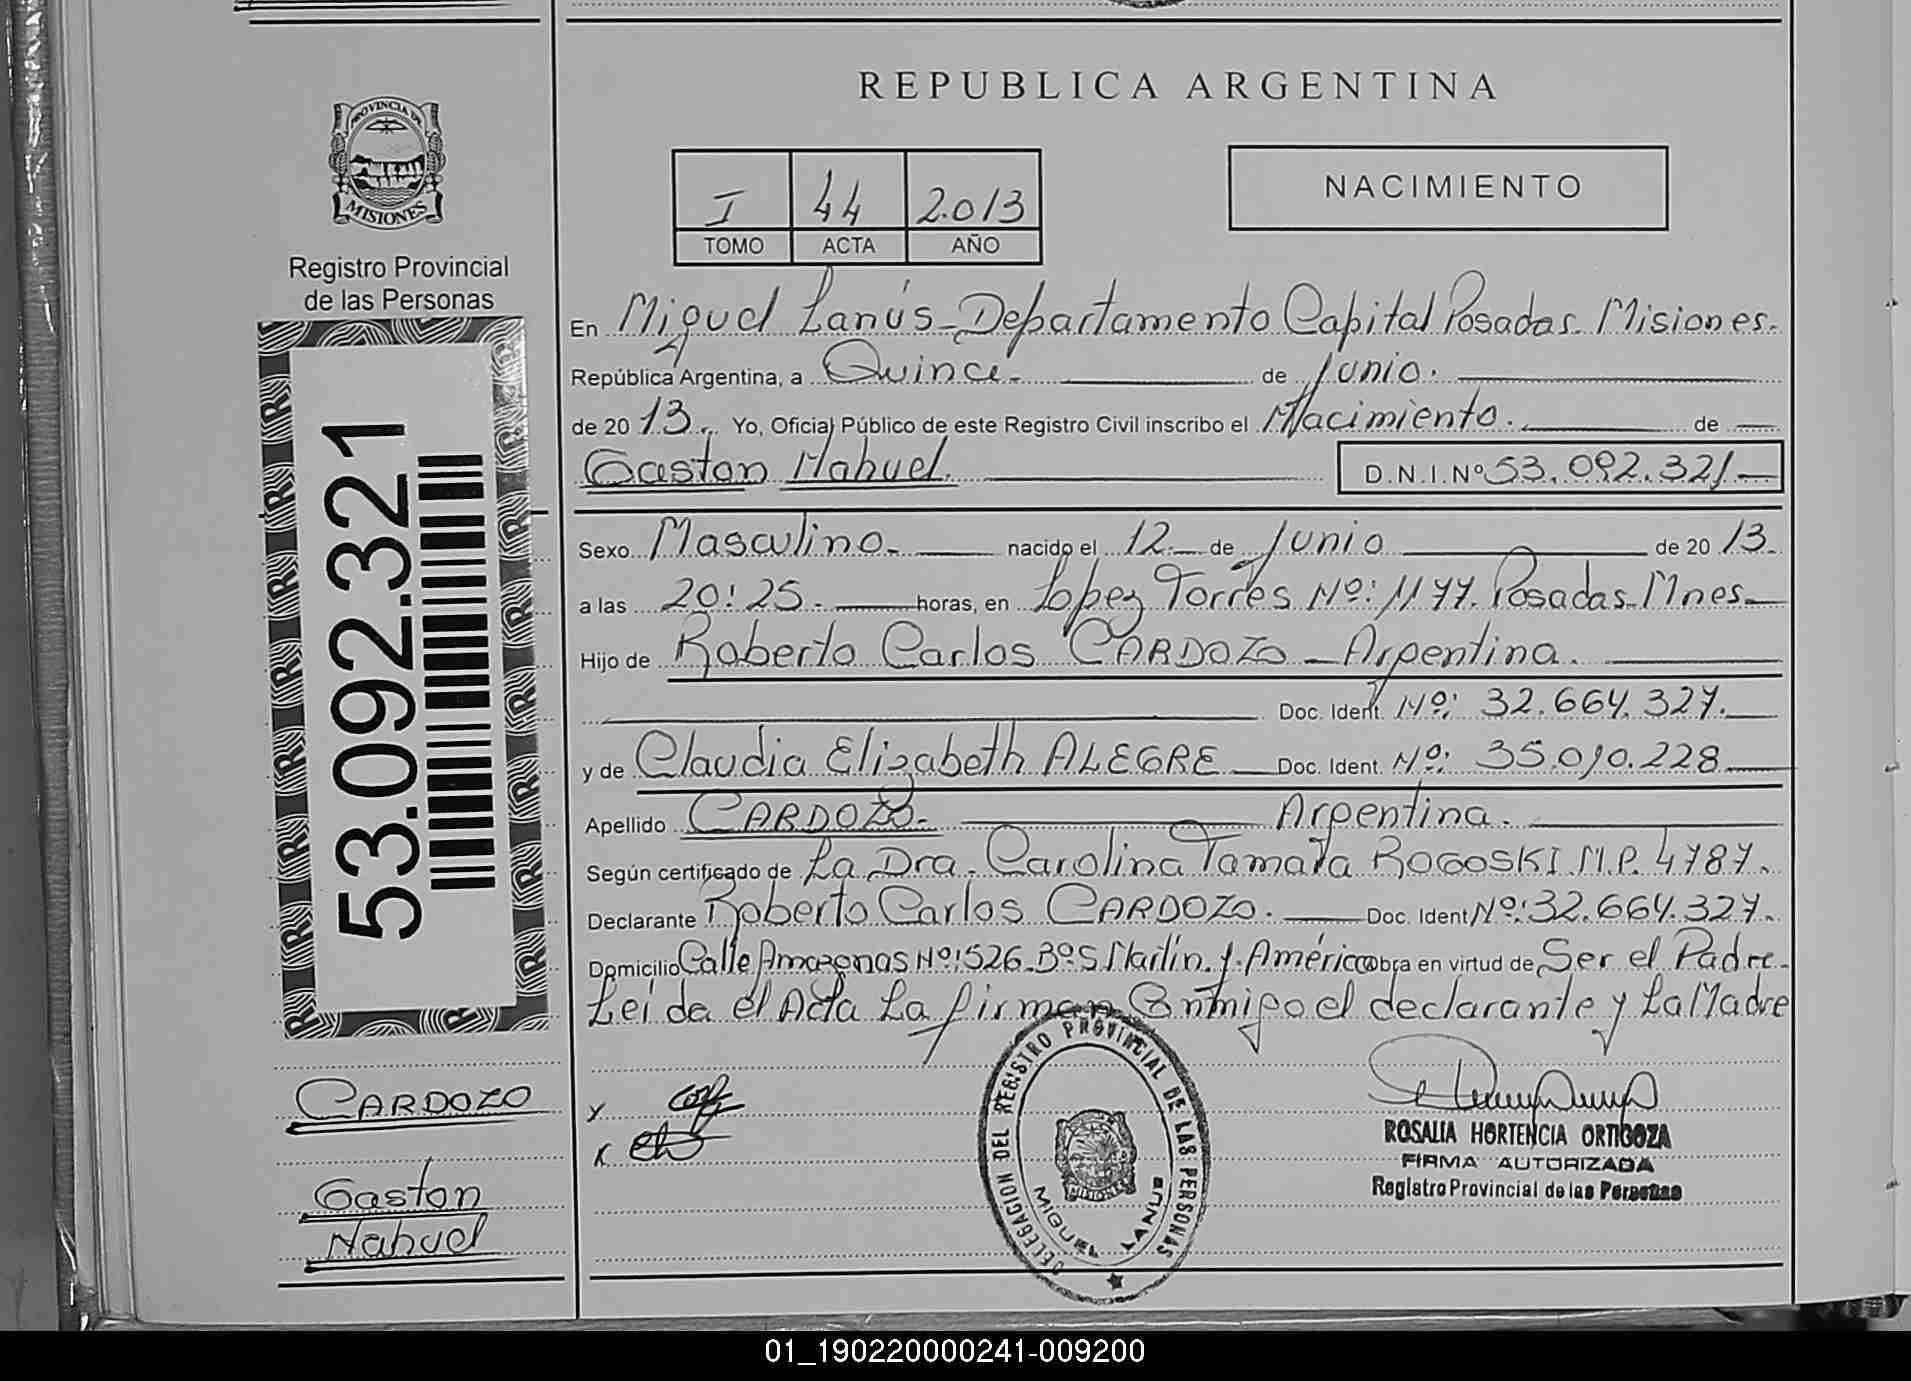 REPUBLICA ARGENTINA
PROVINCIA DE
MISIONES
Registro Provincial
de las Personas
I 44 2.013
TOMO ACTA AÑO
NACIMIENTO
53.092.321
En Miguel Lanús-Departamento Capital Posadas-Misiones-
República Argentina, a Quince- de Junio.
de 2013. Yo, Oficial Público de este Registro Civil inscribo el Nacimiento. de
Gaston Nahuel. D.N.I.Nº 53.092.321-
Sexo Masculino- nacido el 12 de Junio de 2013-
a las 20:25- horas, en Lopez Torres Nº: 1177. Posadas-Mnes-
Hijo de Roberto Carlos CARDOZO - Argentina.
Doc. Ident. Nº: 32.664.327.
y de Claudia Elizabeth ALEGRE Doc. Ident. Nº: 35.010.228
Apellido CARDOZO- Argentina.
Según certificado de La Dra. Carolina Tamara ROGOSKI M.P. 4787.
Declarante Roberto Carlos CARDOZO. Doc. Ident Nº: 32.664.327.
Domicilio Calle Amazonas Nº: 526-Bº S. Martín. y. América obra en virtud de Ser el Padre-
Leída el Acta La firman Conmigo el declarante y La Madre
CARDOZO
Gaston
Nahuel
DELEGACION DEL REGISTRO PROVINCIAL DE LAS PERSONAS
MISIONES
MIGUEL LANUS
ROSALIA HORTENCIA ORTIGOZA
FIRMA AUTORIZADA
Registro Provincial de las Personas
01_190220000241-009200